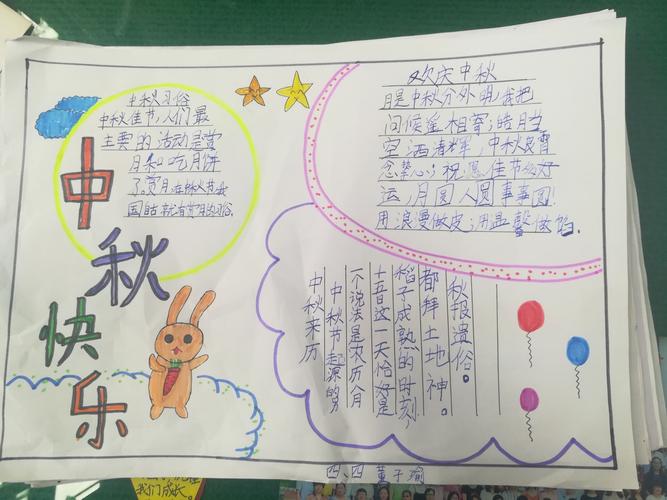 中秋快乐
中秋习俗
中秋佳节,人们最
主要的活动是赏
月和吃月饼
了。赏月,在中秋节,我
国古就有赏月的习俗.
欢庆中秋
月是中秋分外明,我把
问候遥相寄;皓月当
空洒清辉,中秋良宵
念挚心;祝愿佳节多好
运,月圆人圆事事圆
用浪漫做皮;用温馨做馅.
中秋来历
中秋节起源的另
一个说法是农历八月
十五这一天恰好是
稻子成熟的时刻,
都拜土地神。
秋报遗俗。
四、四 董子瑜
我们成长。